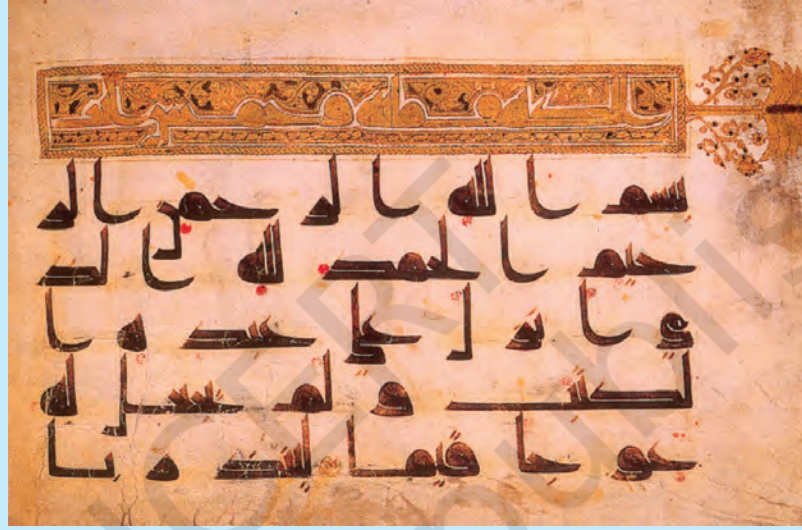 بسم الله الرحمن الر
حيم الحمد لله الذ
ي انزل على عبده ا
لكتب ولم يجعل له
عوجا قيما لينذر با